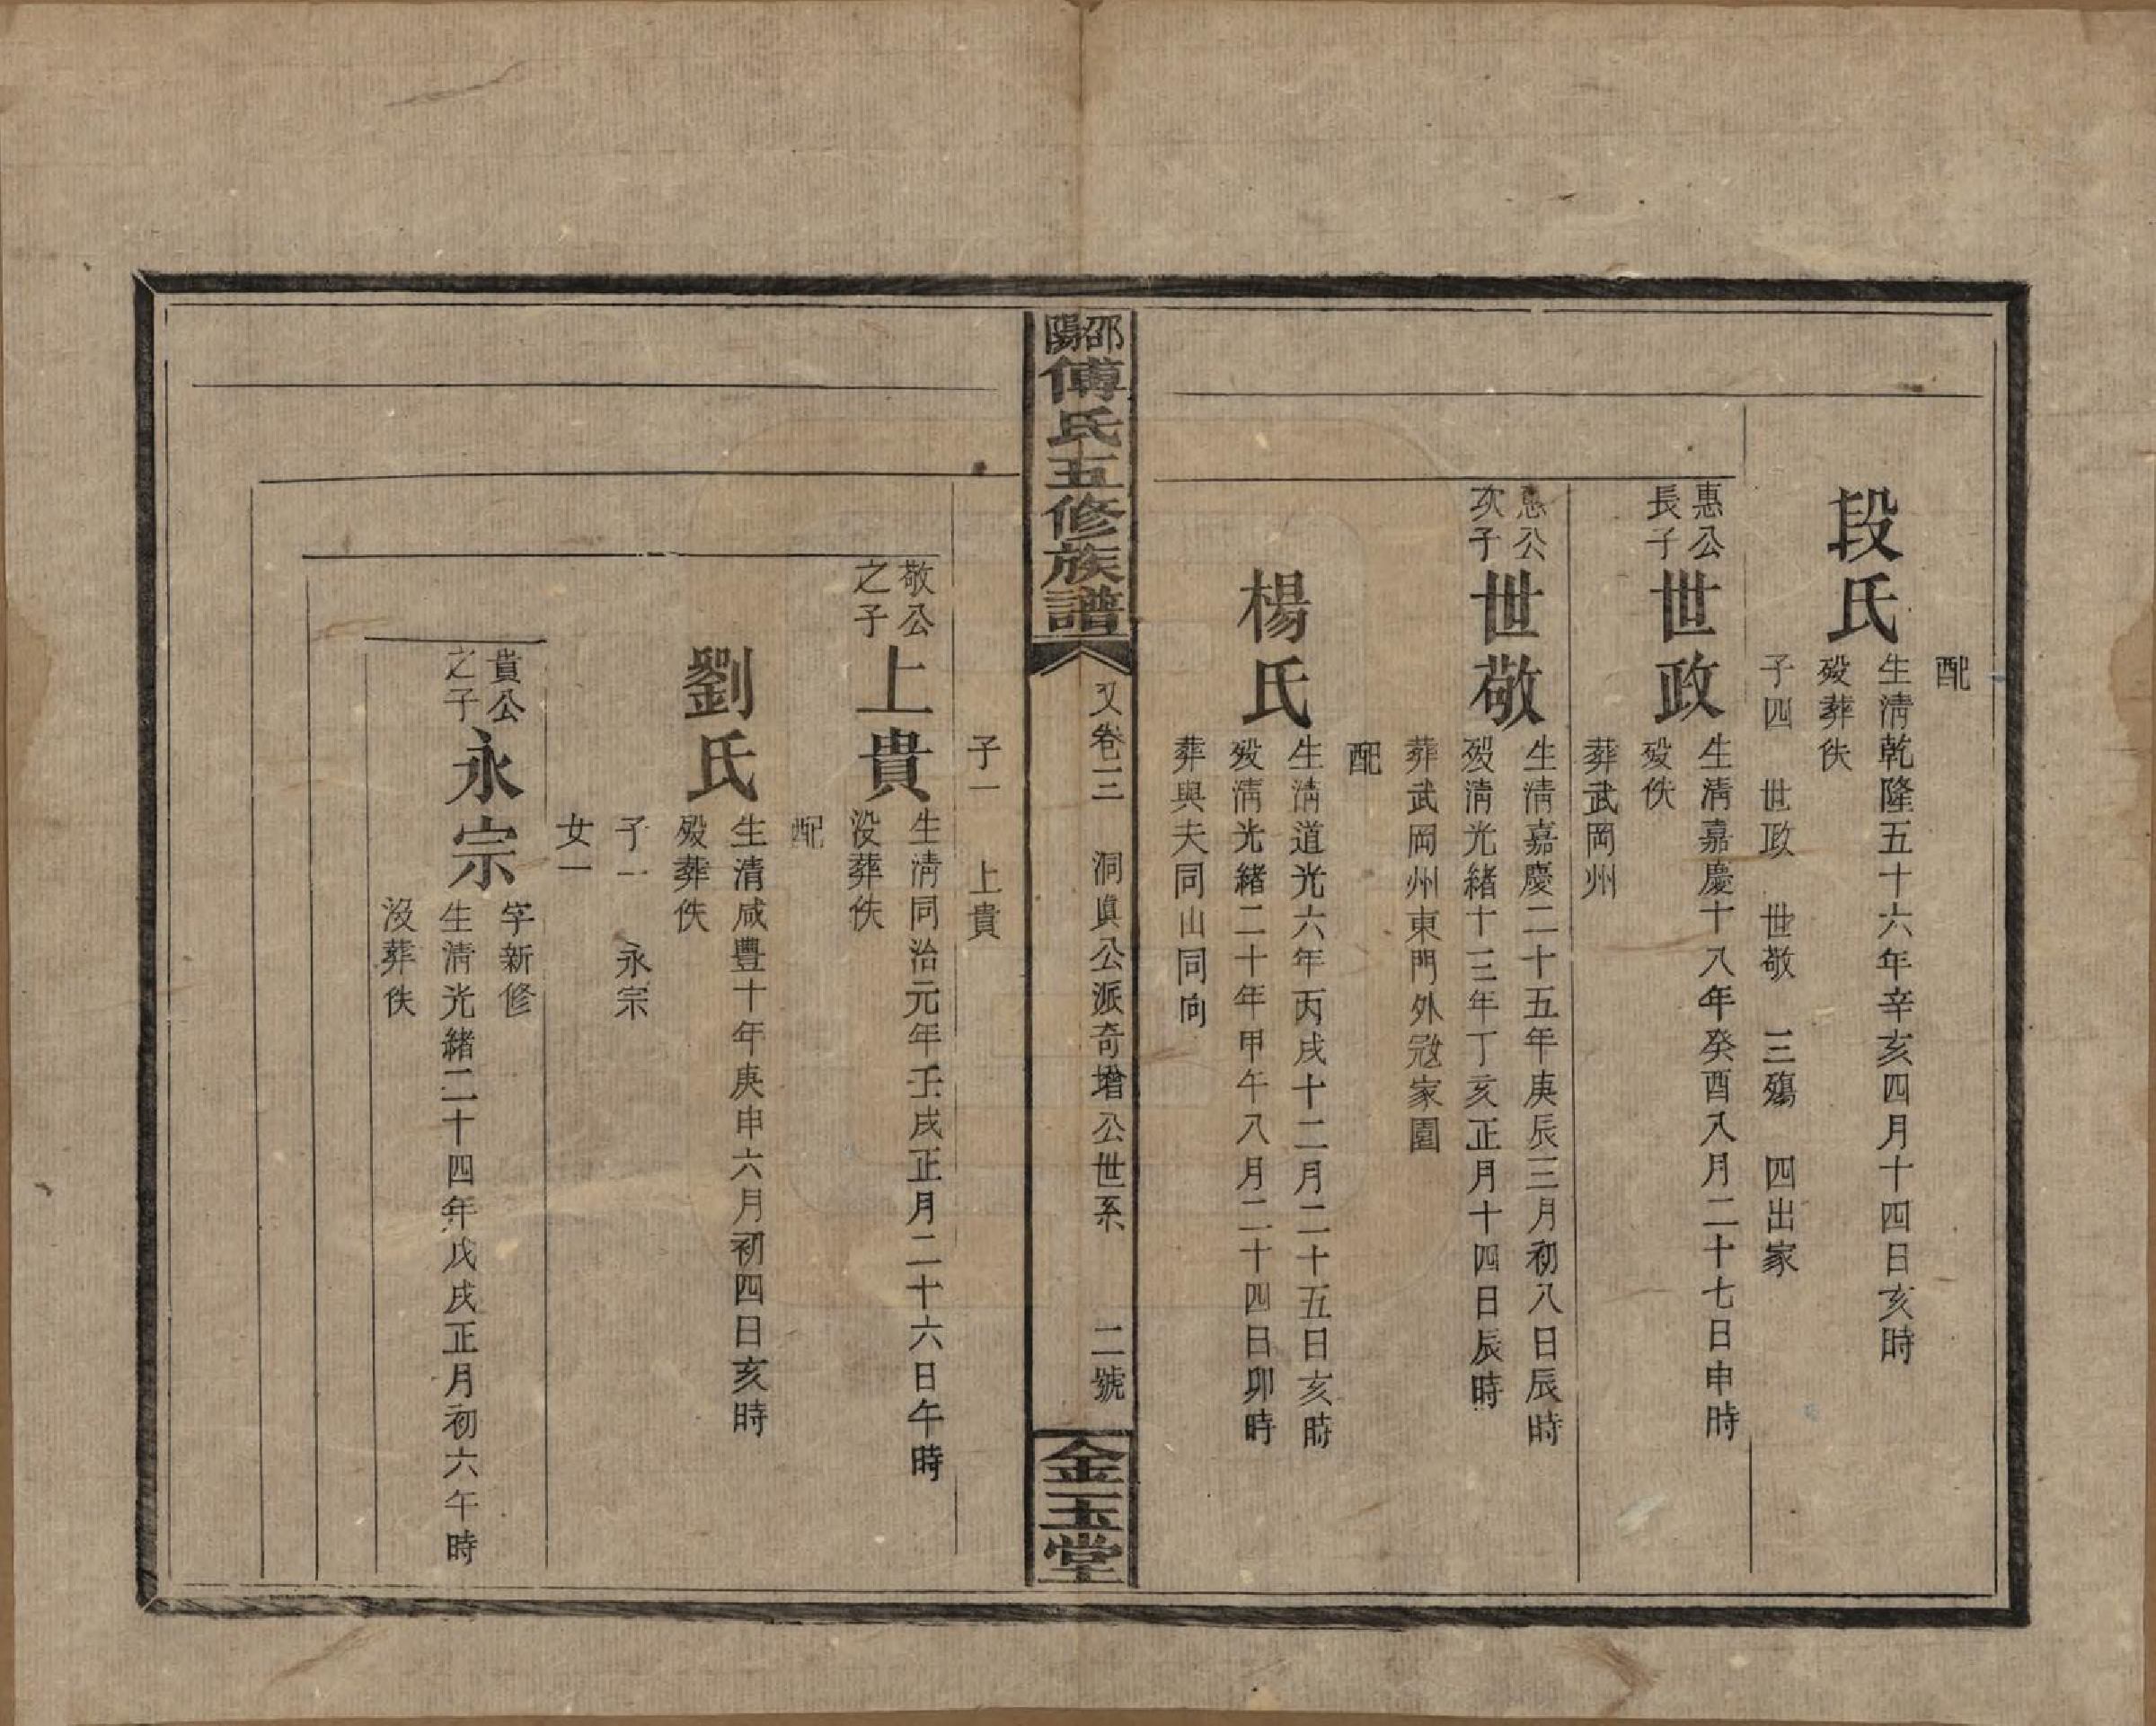 配
段氏
生清乾隆五十六年辛亥四月十四日亥時
殁葬佚
子四 世政 世敬 三殤 四出家
惠公長子
世政
生清嘉慶十八年癸酉八月二十七日申時
殁佚
葬武岡州
惠公次子
世敬
生清嘉慶二十五年庚辰三月初八日辰時
殁清光緒十三年丁亥正月十四日辰時
葬武岡州東門外冠家園
配
楊氏
生清道光六年丙戌十二月二十五日亥時
殁清光緒二十年甲午八月二十四日卯時
葬與夫同山同向
邵陽傅氏五修族譜
又卷三 洞眞公派奇增公世系 二號
金玉堂
子一 上貴
敬公之子
上貴
生清同治元年壬戌正月二十六日午時
没葬佚
配
劉氏
生清咸豐十年庚申六月初四日亥時
殁葬佚
子一 永宗
女一
貴公之子
永宗
字新修
生清光緒二十四年戊戌正月初六午時
沒葬佚